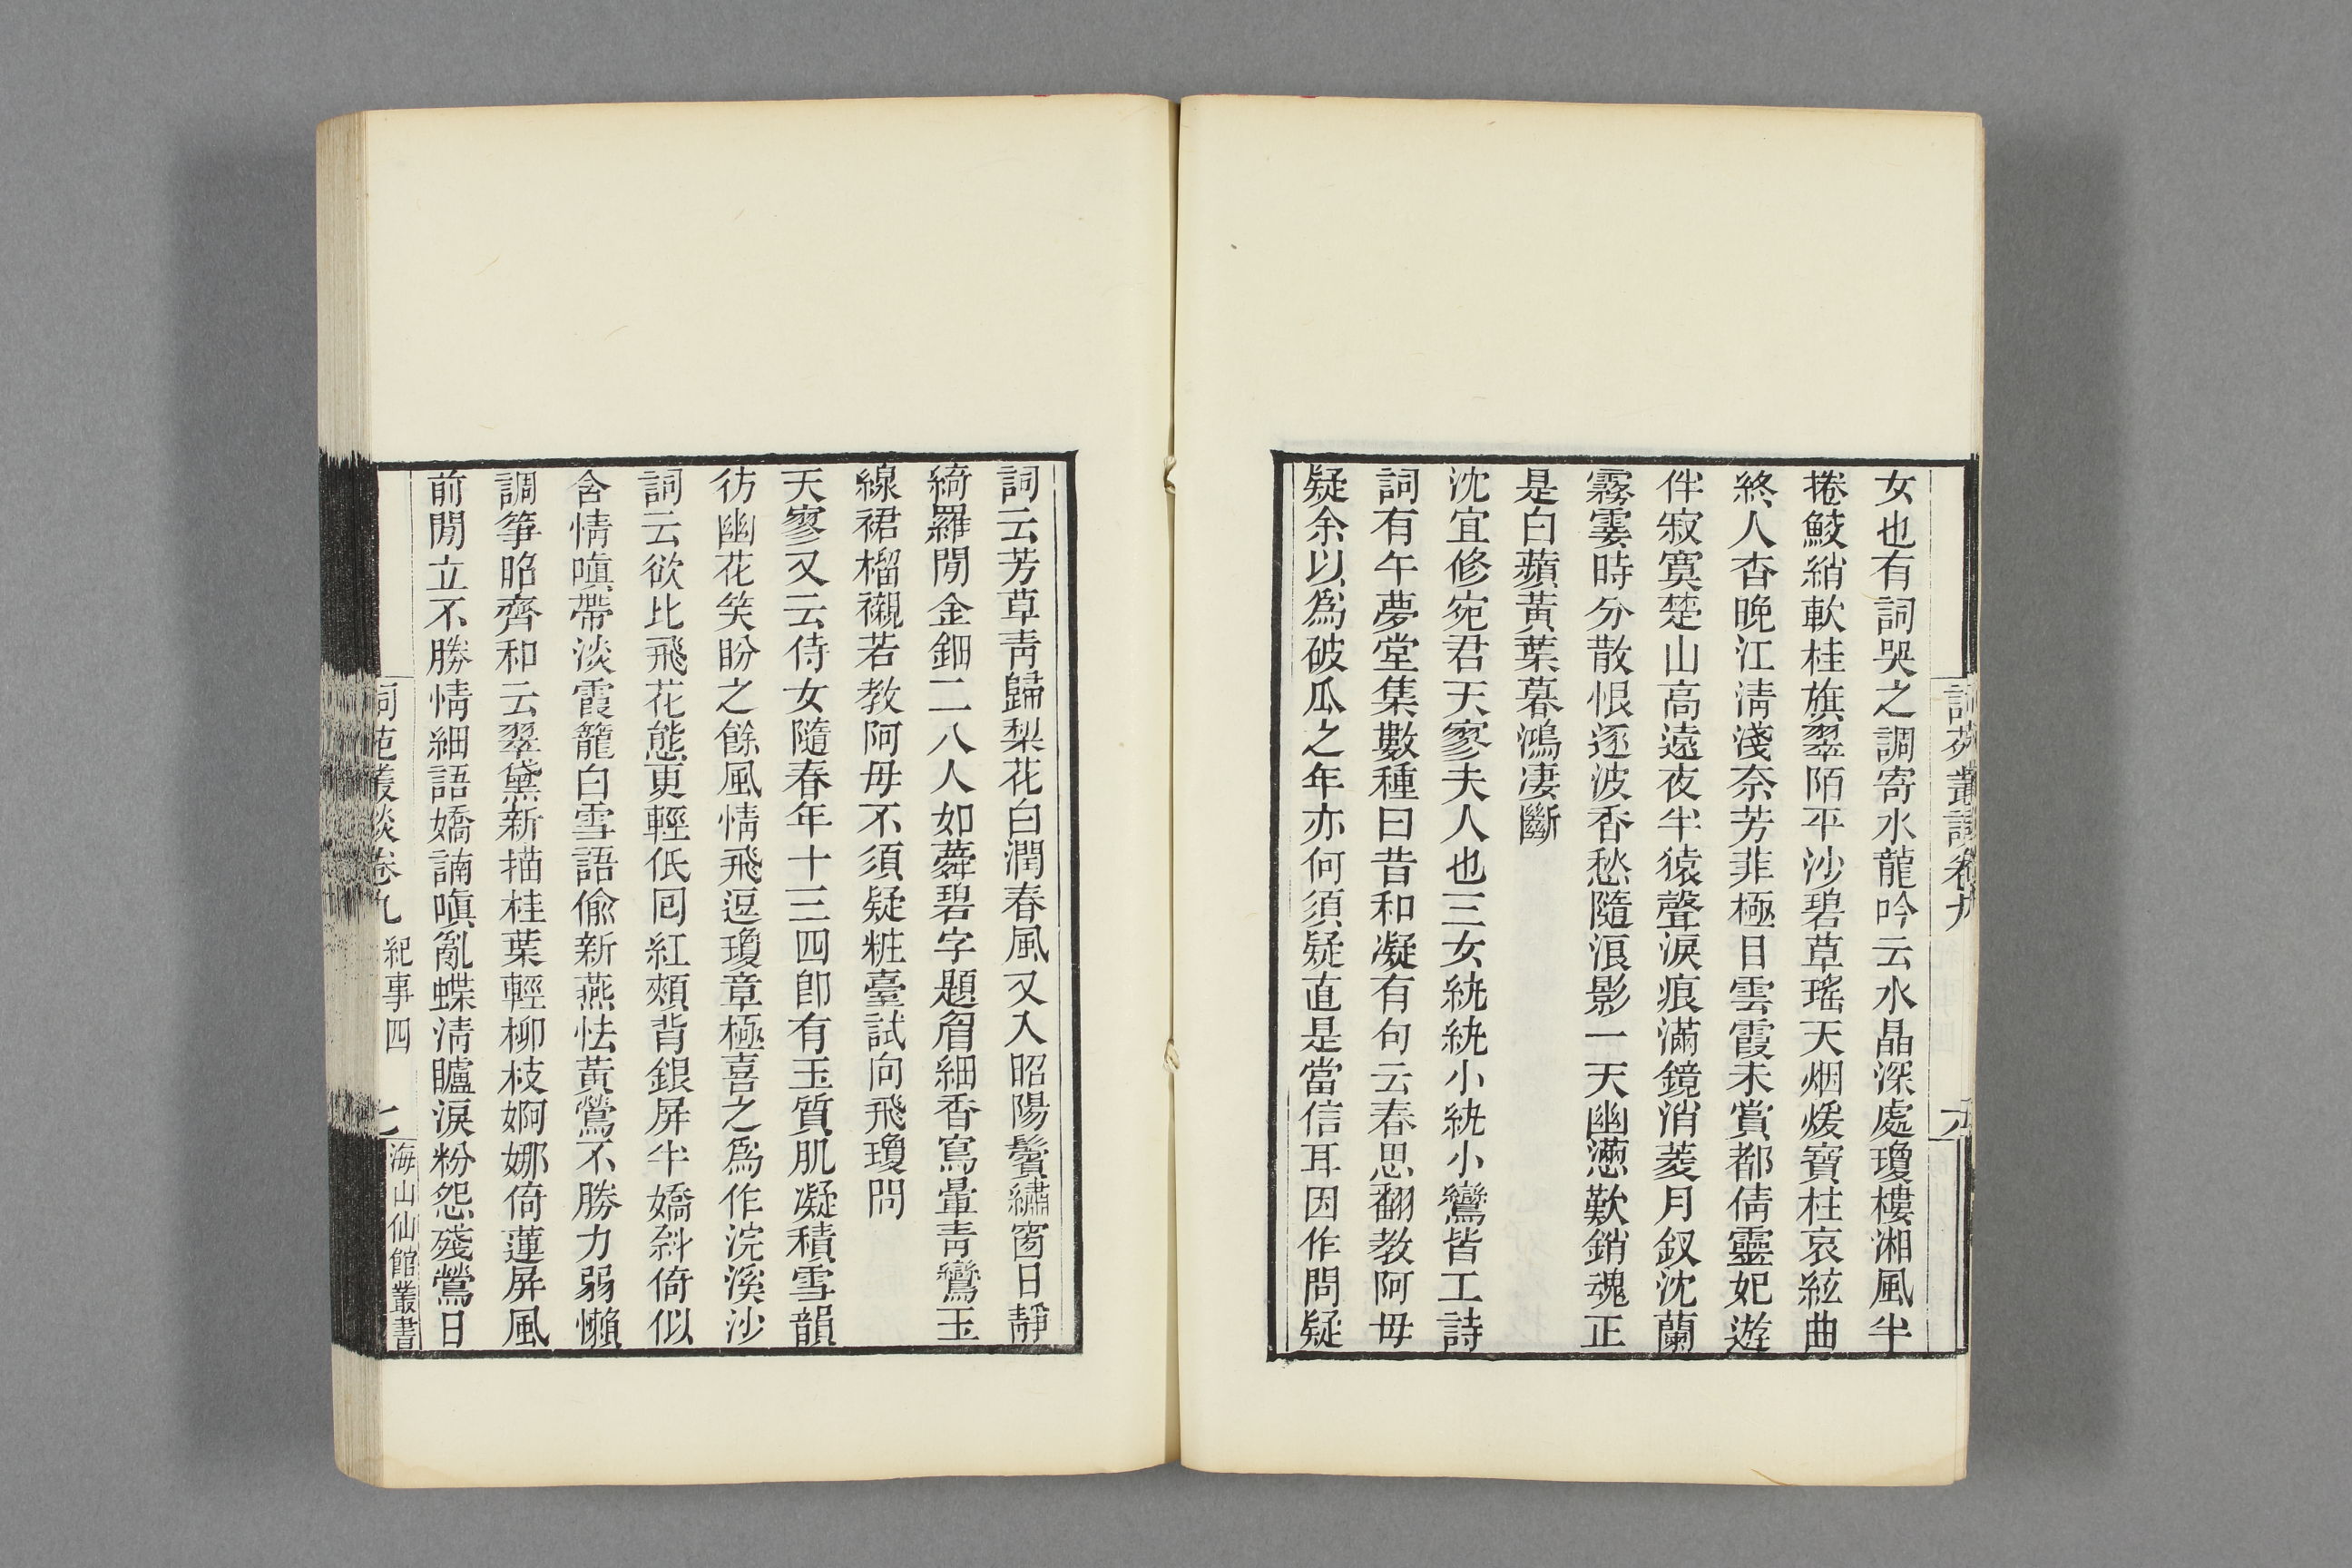 女也有詞哭之調寄水龍吟云水晶深處瓊樓湘風半
捲鮫綃軟桂旗翠陌平沙碧草瑤天烟煖寶柱哀絃曲
終人杳晚江淸淺奈芳菲極目雲霞未賞都倩靈妃遊
伴寂寞楚山高遠夜半猿聲淚痕滿鏡消菱月釵沈蘭
霧霎時分散恨逐波香愁隨浪影一天幽懑歎銷魂正
是白蘋黃葉暮鴻凄斷
沈宜修宛君天寥夫人也三女紈紈小紈小鸞皆工詩
詞有午夢堂集數種曰昔和凝有句云春思翻教阿母
疑余以爲破瓜之年亦何須疑直是當信耳因作問疑
詞云芳草靑歸梨花白潤春風又入昭陽鬢繡窗日靜
綺羅閒金鈿二八人如蕣碧字題眉細香寫暈靑鸞玉
線裙榴襯若教阿母不須疑粧臺試向飛瓊問
天寥又云侍女隨春年十三四卽有玉質肌凝積雪韻
彷幽花笑盼之餘風情飛逗瓊章極喜之爲作浣溪沙
詞云欲比飛花態更輕低回紅頰背銀屏半嬌斜倚似
含情嗔帶淡霞籠白雪語偸新燕怯黃鶯不勝力弱懶
調箏昭齊和云翠黛新描桂葉輕柳枝婀娜倚蓮屏風
前閒立不勝情細語嬌諵嗔亂蝶淸矑淚粉怨殘鶯日
詞苑叢談卷九 紀事四 七 海山仙館叢書